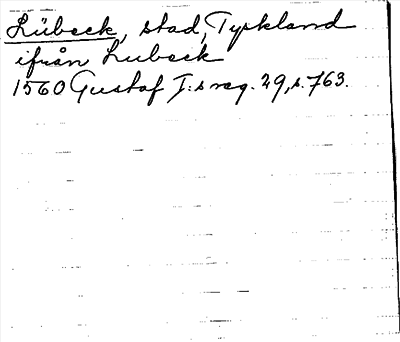 Lübeck, stad, Tyskland
ifrån Lubeck
1560 Gustaf I:s reg. 29, s. 763.